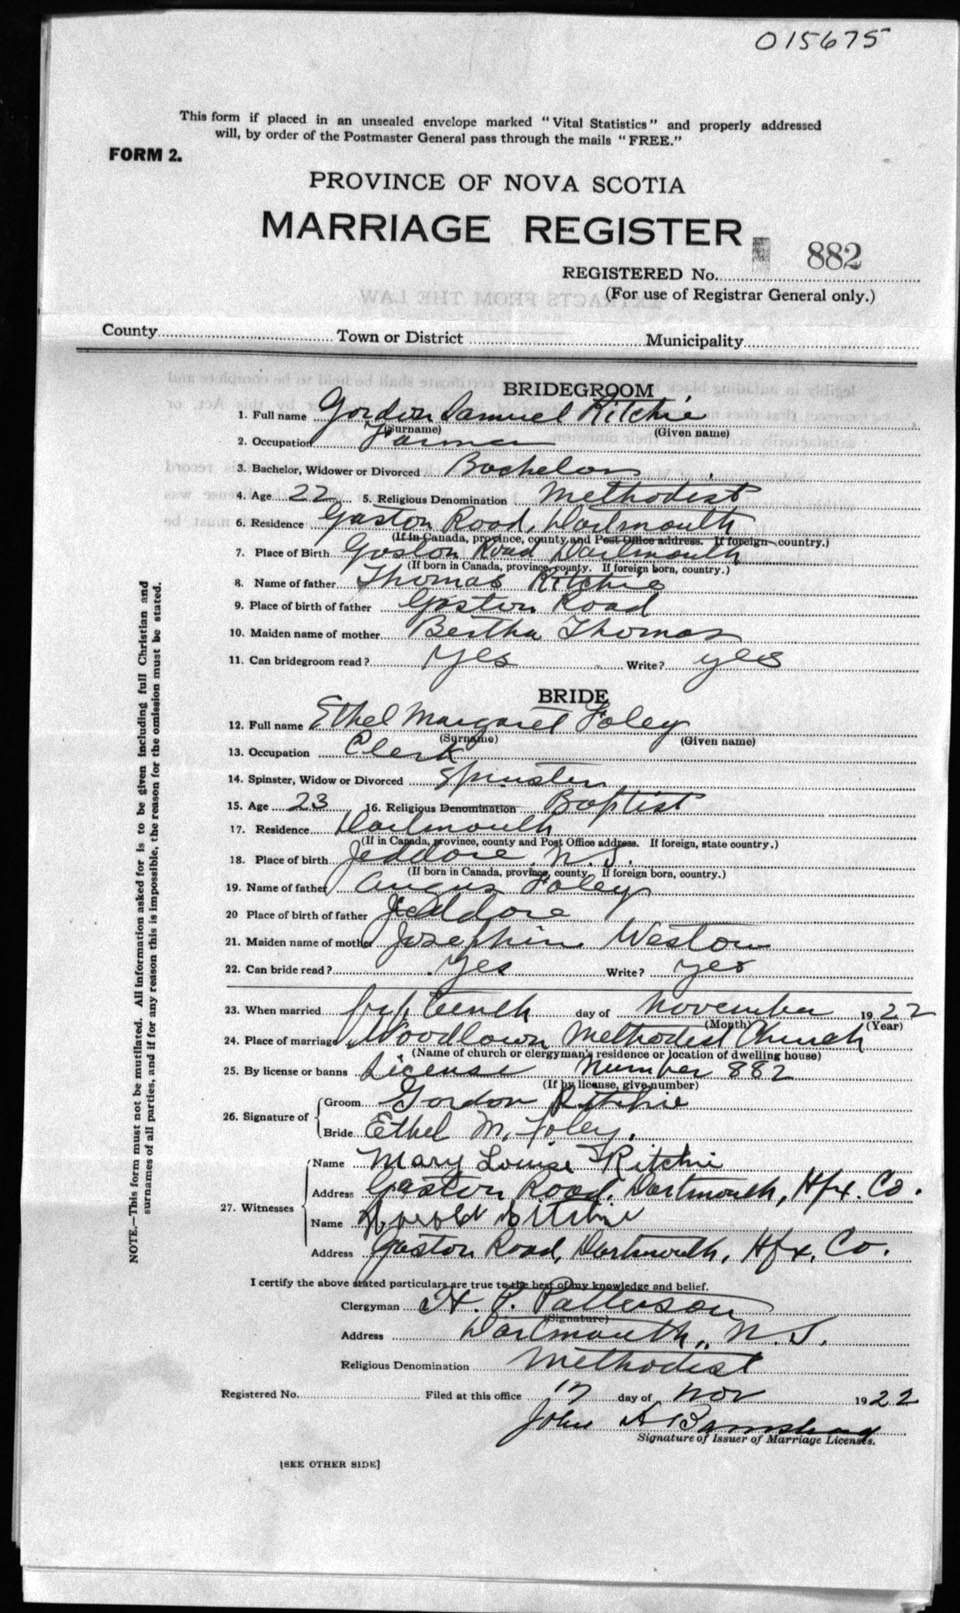 015675
This form if placed in an unsealed envelope marked "Vital Statistics" and properly addressed
will, by order of the Postmaster General pass through the mails "FREE."
FORM 2.
PROVINCE OF NOVA SCOTIA
MARRIAGE REGISTER
REGISTERED No. 882
(For use of Registrar General only.)
County Town or District Municipality
BRIDEGROOM
1. Full name Gordon Samuel Ritchie
(Surname) (Given name)
2. Occupation Farmer
3. Bachelor, Widower or Divorced Bachelor
4. Age 22 5. Religious Denomination Methodist
6. Residence Gaston Road, Dartmouth
(If in Canada, province, county and Post Office address. If foreign country.)
7. Place of Birth Gaston Road Dartmouth
(If born in Canada, province, county. If foreign born, country.)
8. Name of father Thomas Ritchie
9. Place of birth of father Gaston Road
10. Maiden name of mother Bertha Thomas
11. Can bridegroom read? Yes Write? yes
BRIDE
12. Full name Ethel Margaret Foley
(Surname) (Given name)
13. Occupation Clerk
14. Spinster, Widow or Divorced Spinster
15. Age 23 16. Religious Denomination Baptist
17. Residence Dartmouth
(If in Canada, province, county and Post Office address. If foreign, state country.)
18. Place of birth Jeddore, N.S.
(If born in Canada, province, county. If foreign born, country.)
19. Name of father Angus Foley
20 Place of birth of father Jeddore
21. Maiden name of mother Josephine Weston
22. Can bride read? Yes Write? yes
23. When married fifteenth day of November 1922
(Month) (Year)
24. Place of marriage Woodlawn Methodist Church
(Name of church or clergyman's residence or location of dwelling house)
25. By license or banns License Number 882
(If by license, give number)
26. Signature of Groom Gordon Ritchie
Bride Ethel M. Foley.
27. Witnesses Name Mary Louise Ritchie
Address Gaston Road, Dartmouth, Hfx. Co.
Name Harold Ritchie
Address Gaston Road, Dartmouth, Hfx. Co.
I certify the above stated particulars are true to the best of my knowledge and belief.
Clergyman H. P. Patterson
(Signature)
Address Dartmouth, N.S.
Religious Denomination Methodist
Registered No. Filed at this office 17 day of Nov 1922
John A
Signature of Issuer of Marriage Licenses.
[SEE OTHER SIDE]
NOTE.—This form must not be mutilated. All information asked for is to be given including full Christian and
surnames of all parties, and if for any reason this is impossible, the reason for the omission must be stated.